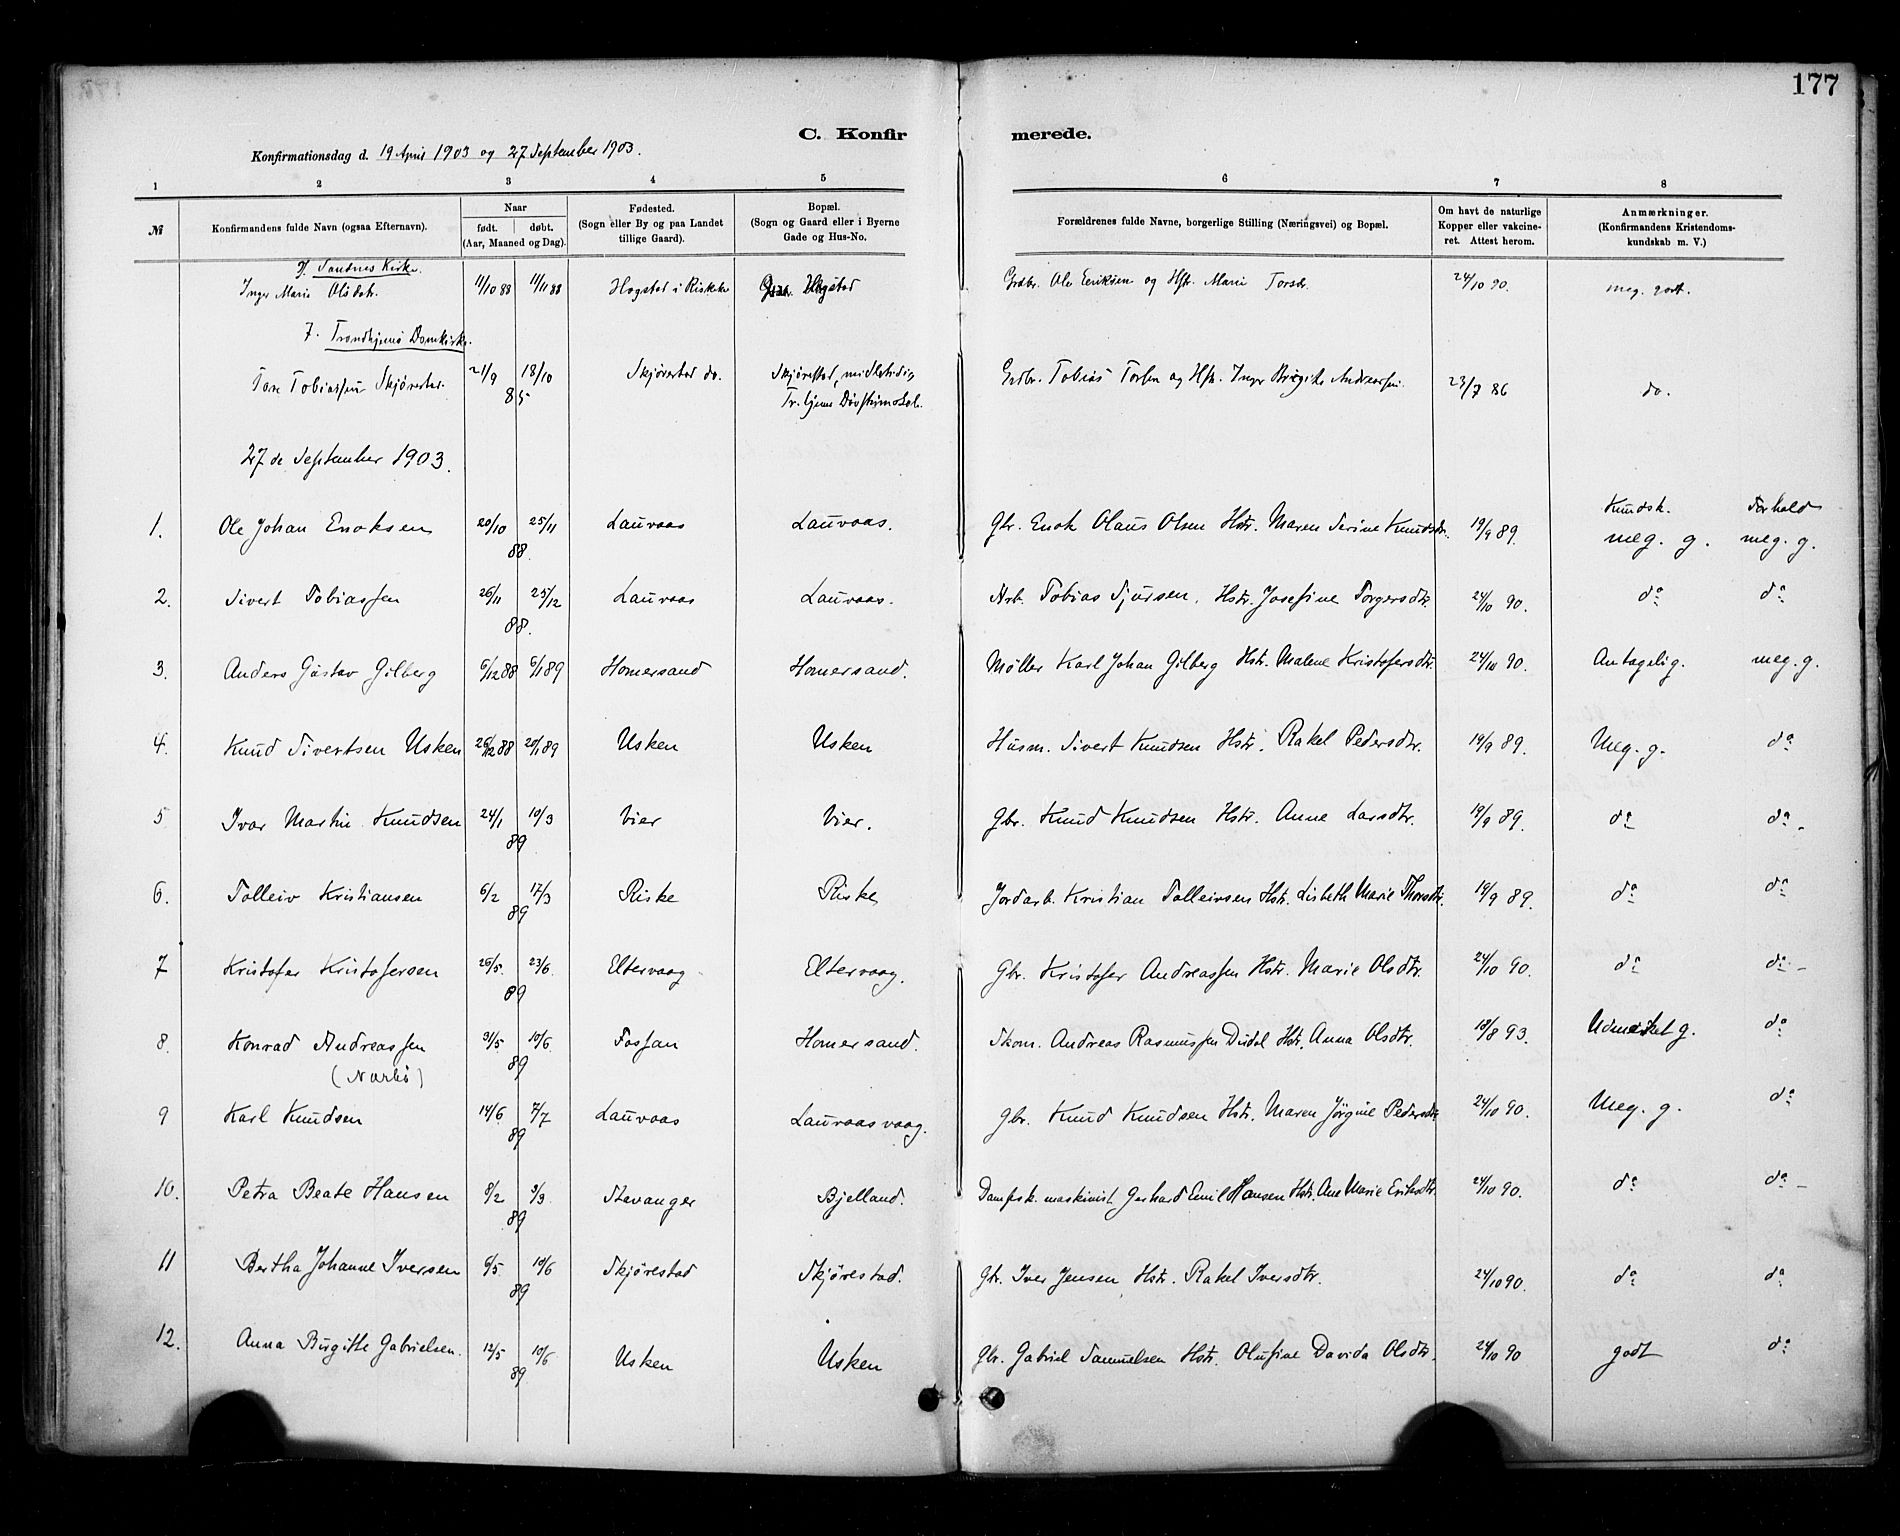 177
C. Konfirmerede.
Konfirmationsdag d. 19 April 1903 og 27 September 1903.
1 2 3 4 5 6 7 8
№ Konfirmandens fulde Navn (ogsaa Efternavn). Naar født. døbt. (Aar, Maaned og Dag). Fødested. (Sogn eller By og paa Landet tillige Gaard). Bopæl. (Sogn og Gaard eller i Byerne Gade og Hus-No. Forældrenes fulde Navne, borgerlige Stilling (Næringsvei) og Bopæl. Om havt de naturlige Kopper eller vakcineret. Attest herom. Anmærkninger. (Konfirmandens Kristendomskundskab m. V.)
Sandnes Kirke.
Inger Marie Olsdatr. 11/10 88 11/11 88 Hogstad i Riskeke Hogstad Grdbr. Ole Eriksen og Hstr. Marie Torsdr. 24/10 90. meg. godt.
7. Trondhjems Domkirke.
Tore Tobiassen Skjørestad. 21/9 18/10 85 Skjørestad do. Skjørestad, midlertidig Grdbr. Tobias Torsen og Hstr. Inger Birgitte Andreassen. 23/7 86 do.
Tr.hjems Døvstumskole.
27de September 1903.
Kundsk. Forhold
1. Ole Johan Enoksen 20/10 25/11 88. Lauvaas Lauvaas. Gbr. Enok Olaus Olsen Hstr. Maren Serine Knudsdtr. 19/9 89. meg. g. meg. g.
2. Sivert Tobiassen 26/11 25/12 88. Lauvaas Lauvaas. Arb. Tobias Sjursen. Hstr. Josefine Torgersdtr. 24/10 90. do do
3. Anders Gustav Gilberg 6/12 88 6/1 89 Homersand Homersand. Møller Karl Johan Gilberg Hstr. Malene Kristofersdtr. 24/10 90. Antagelig. meg. g.
4. Knud Sivertsen Usken 26/12 88 20/1 89 Usken Usken Husm. Sivert Knudsen Hstr. Rakel Pedersdtr. 19/9 89. Meg. g. do
5 Ivar Martin Knudsen 24/1 10/3 89 Vier Vier. Gbr. Knud Knudsen Hstr. Anne Larsdtr. 19/9 89. do do
6. Tolleiv Kristiansen 6/2 17/3 89 Riske Riske Jordarb. Kristian Tolleivsen Hstr. Lisbeth Marie Thorsdtr. 19/9 89. do do
7 Kristofer Kristofersen 26/5. 23/6. 89 Eltervaag Eltervaag. Gbr. Kristofer Andreassen Hstr. Marie Olsdtr. 24/10 90. do do
8. Konrad Andreassen 31/5 10/6 89 Fossan Homersand. Skom. Andreas Rasmussen Dirdal Hstr. Anna Olsdtr. 18/8 93. Udmerket g. do
(Nærbø)
9 Karl Knudsen 14/6 7/7 89 Lauvaas Lauvaasvaag. Gbr. Knud Knudsen Hstr. Maren Jørgine Pedersdtr 24/10 90. Meg. g. do
10. Petra Beate Hansen 8/2 3/3 89 Stavanger Bjelland. Dampsk. maskinist Gerhard Emil Hansen Hstr. Ane Marie Eriksdtr. 24/10 90. do do
11 Bertha Johanne Iversen 6/5. 10/6 89 Skjørestad Skjørestad. Gbr. Iver Jensen Hstr. Rakel Iversdtr. 24/10 90. do do
12. Anna Birgitte Gabrielsen. 12/5 10/6 89 Usken Usken Gbr. Gabriel Samuelsen Hstr. Olufine Davida Olsdtr. 24/10 90 godt do